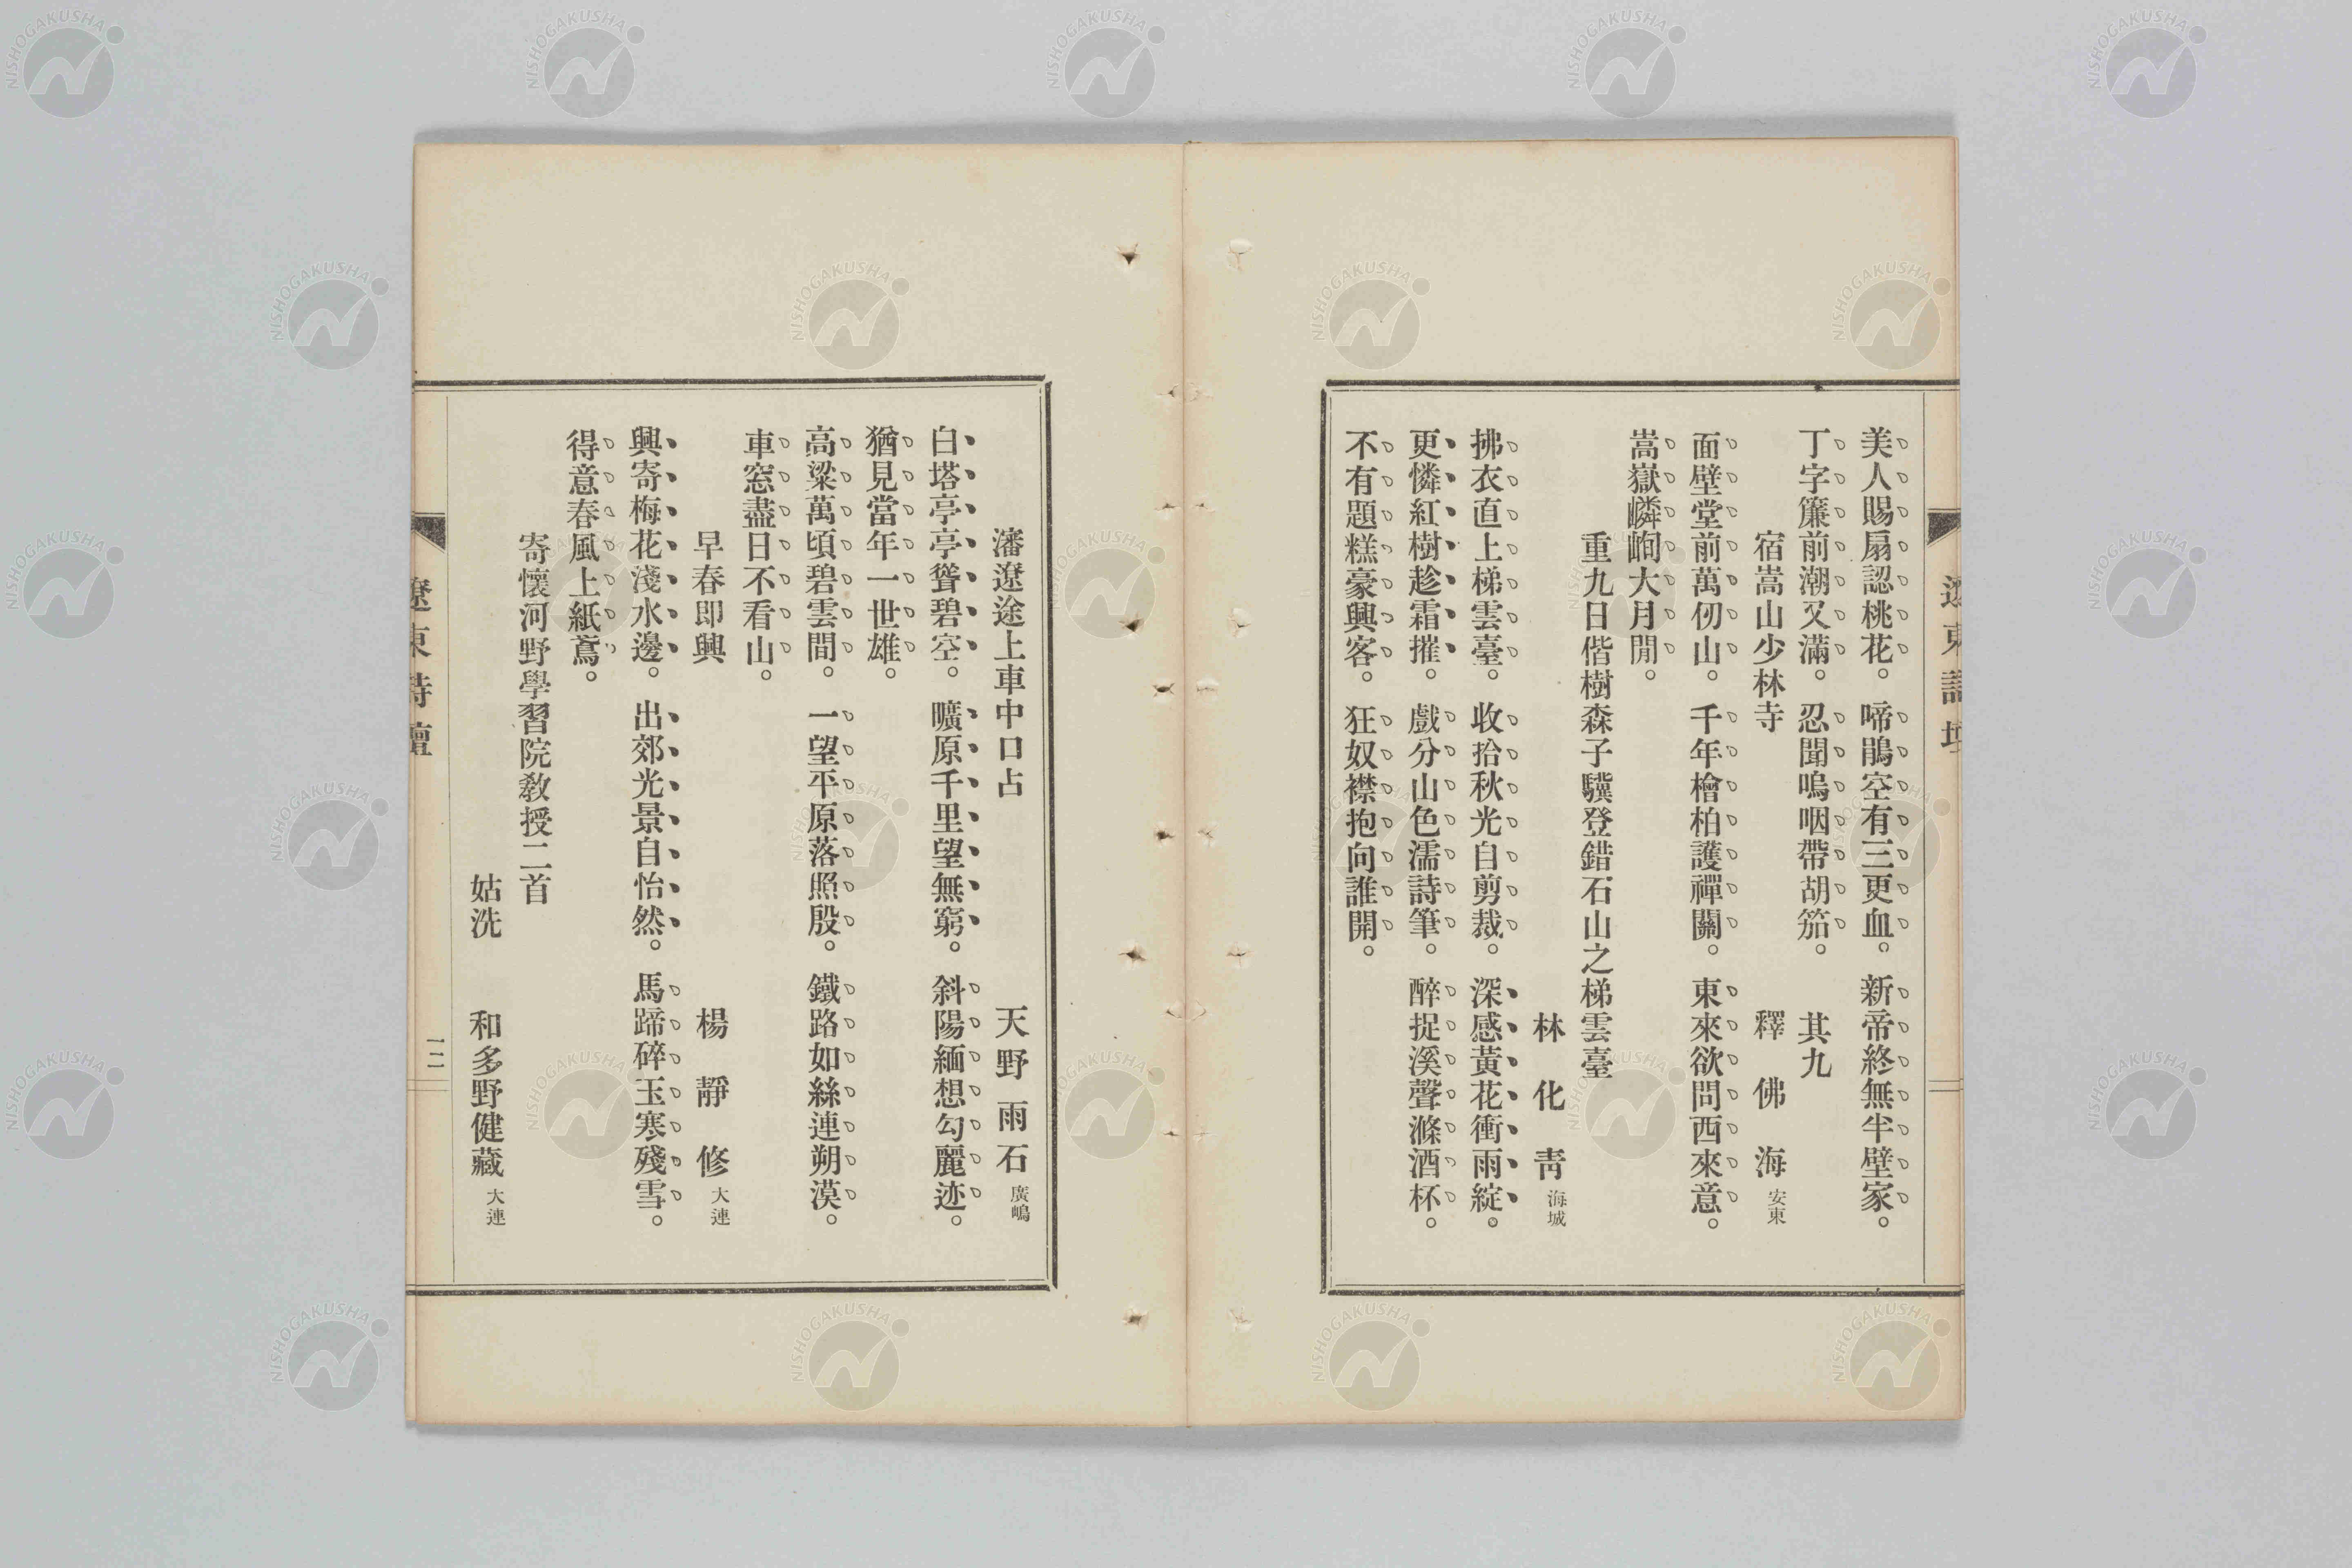 遼東詩壇
美人賜扇認桃花。啼鵑空有三更血。新帝終無半壁家。
丁字簾前潮又滿。忍聞嗚咽帶胡笳。其九
宿嵩山少林寺 釋佛海 安東
面壁堂前萬仞山。千年檜柏護禪關。東來欲問西來意。
嵩嶽嶙峋大月閒。
重九日偕樹森子驥登錯石山之梯雲臺
林化靑 海城
拂衣直上梯雲臺。收拾秋光自剪裁。深感黃花衝雨綻。
更憐紅樹趁霜摧。戲分山色濡詩筆。醉捉溪聲滌酒杯。
不有題糕豪興客。狂奴襟抱向誰開。
瀋遼途上車中口占 天野雨石 廣嶋
白塔亭亭聳碧空。曠原千里望無窮。斜陽緬想勾麗迹。
猶見當年一世雄。
高粱萬頃碧雲間。一望平原落照殷。鐵路如絲連朔漠。
車窓盡日不看山。
早春即興 楊靜修 大連
興寄梅花淺水邊。出郊光景自怡然。馬蹄碎玉寒殘雪。
得意春風上紙鳶。
寄懷河野學習院教授二首
姑洗 和多野健藏 大連
遼東詩壇
一二
NISHOGAKUSHA